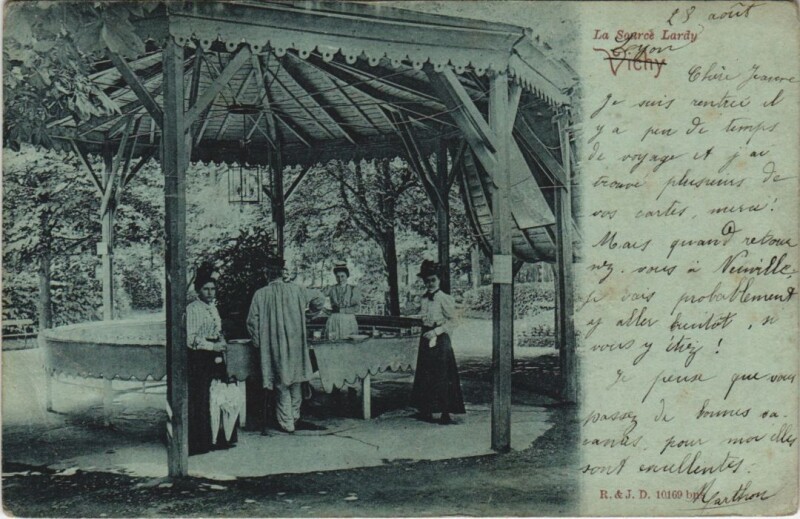 28 août
La Source Lardy
Lyon
Vichy
Chère Jeanne
Je suis rentrée il
y a peu de temps
de voyage et j'ai
trouvé plusieurs de
vos cartes, merci!
Mais quand retour
nez-vous à Neuville,
je vais probablement
y aller bientôt, si
vous y étiez!
Je pense que vous
passez de bonnes va-
cances, pour moi elles
sont excellentes.
Marthon
R. & J. D. 10169